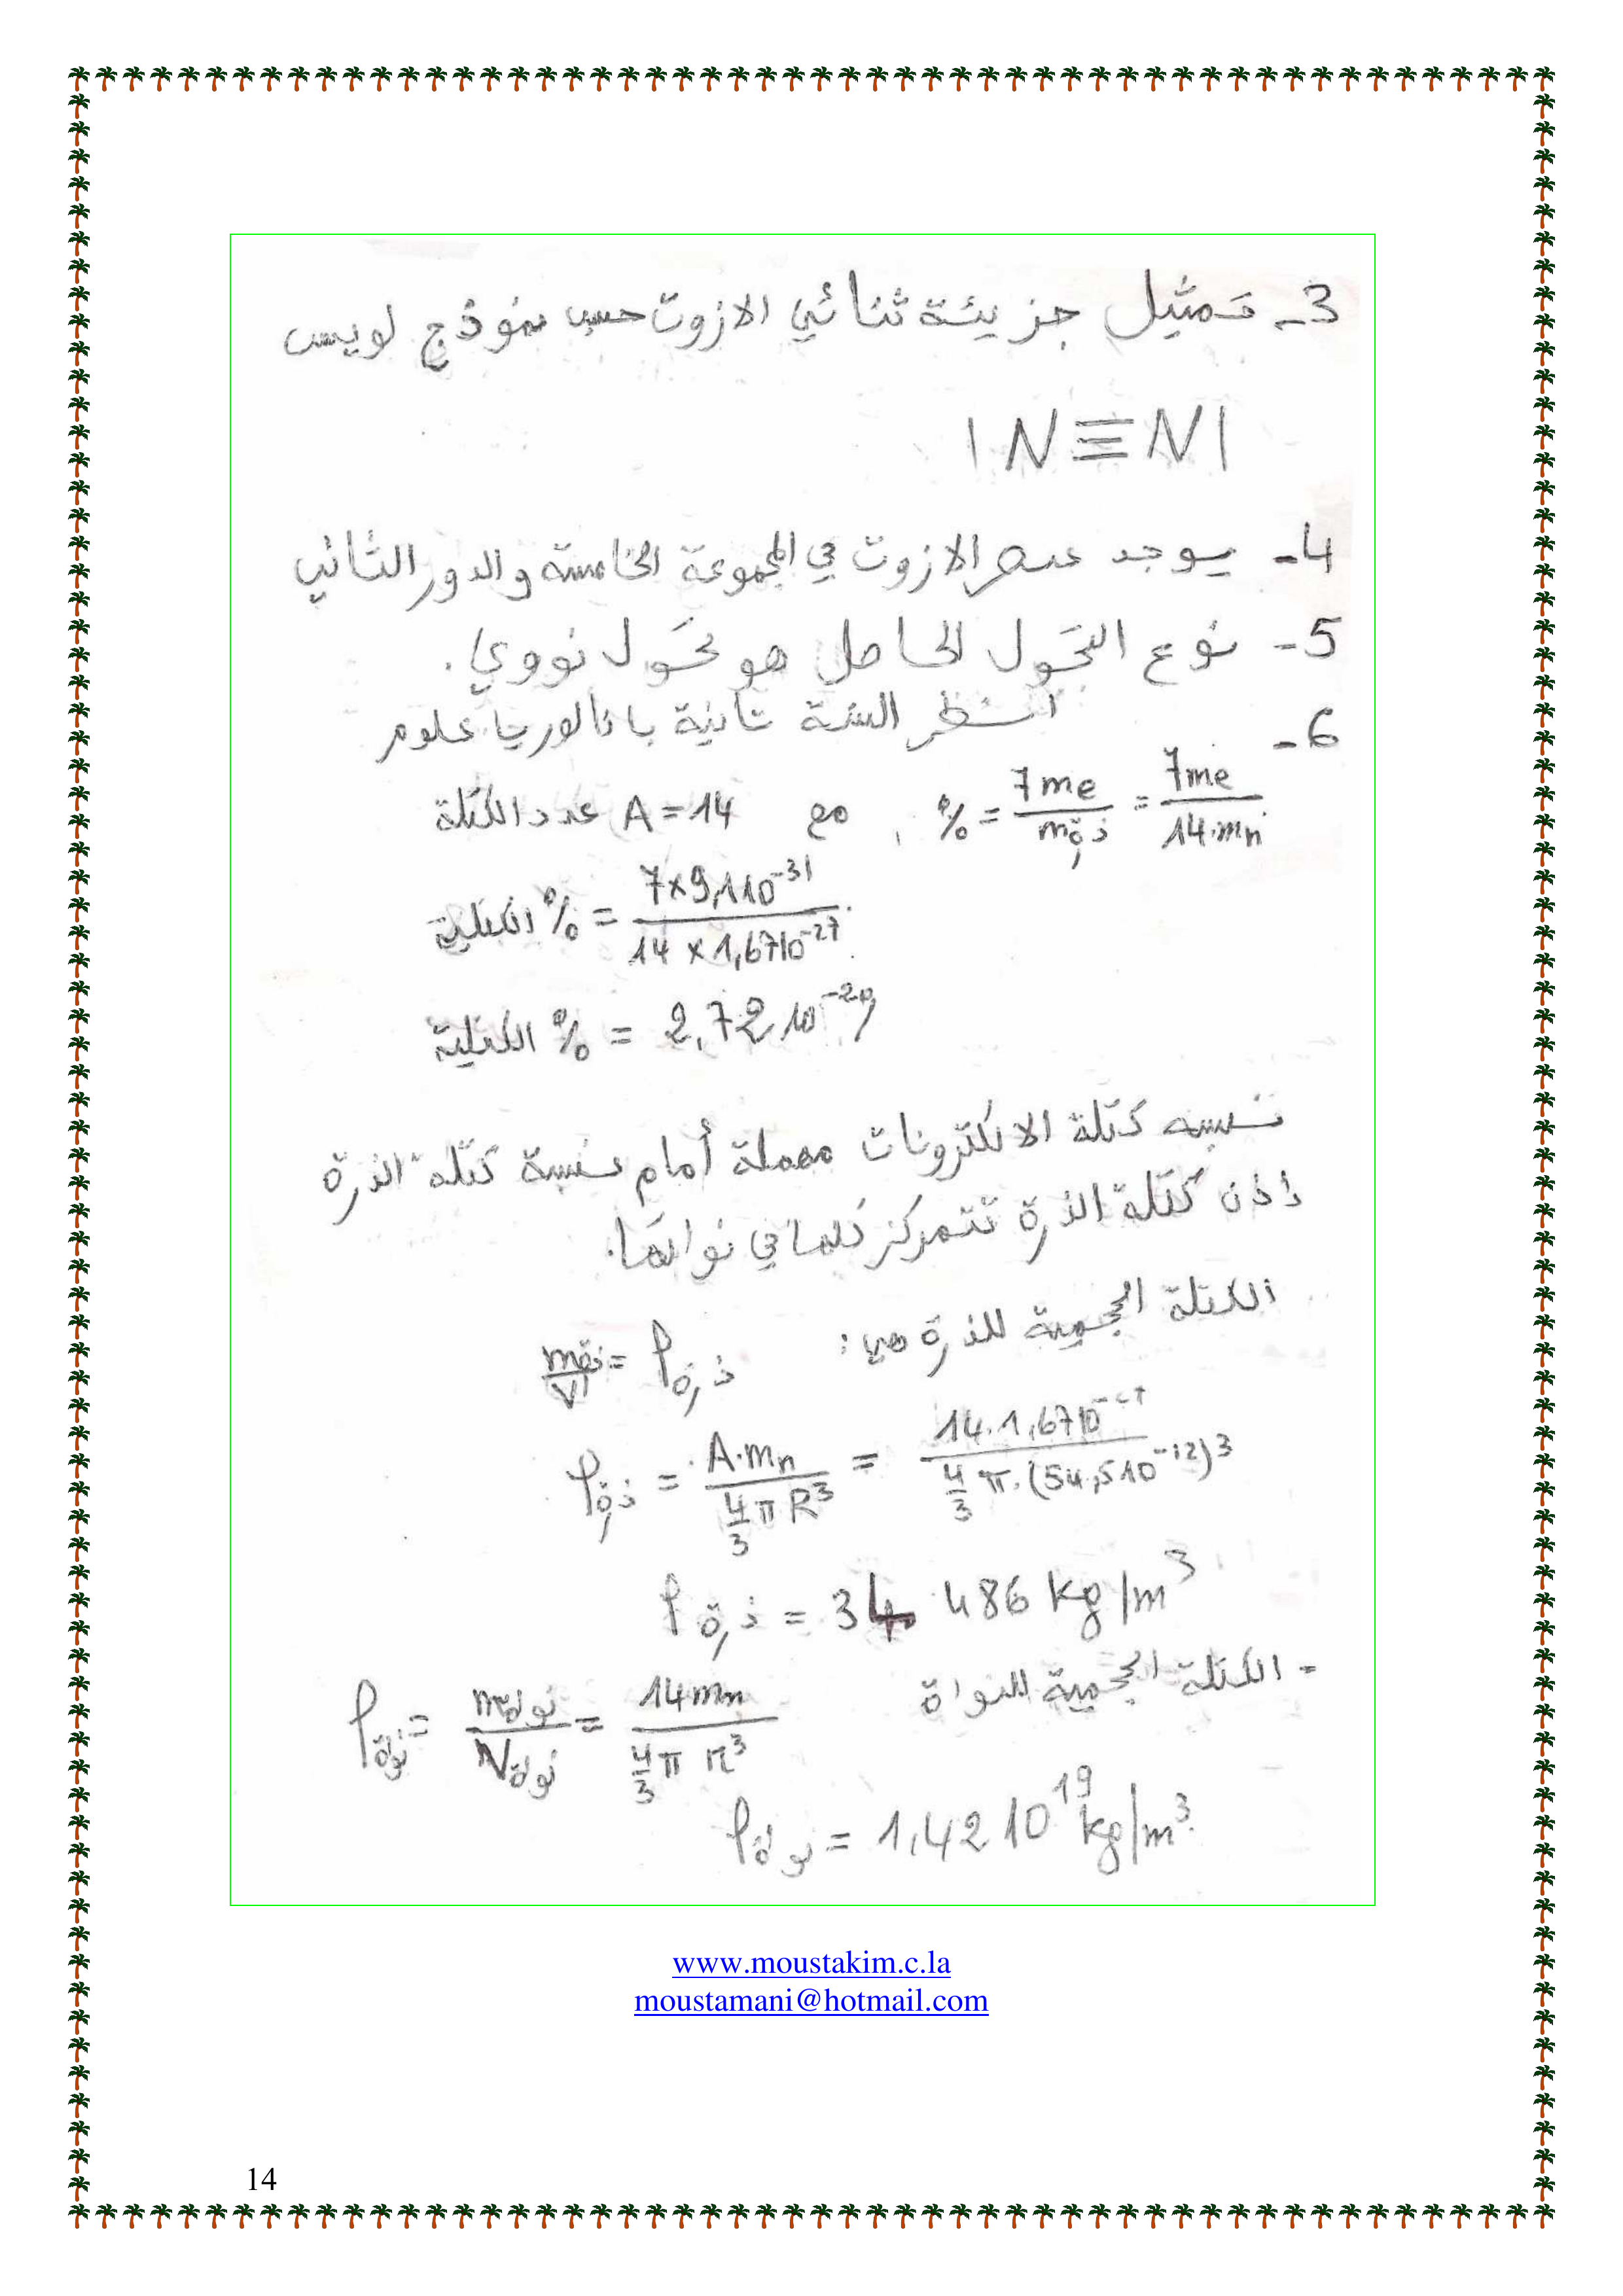 3- تمثيل جزيئة ثنائي الازوت حسب نموذج لويس
|N≡N|
4- يوجد عنصر الازوت في المجموعة الخامسة والدور الثاني
5- نوع التحَول الحاصل هو تحَول نووي.
6- انظر السنة ثانية باكالوريا علوم
% = 7me/mذرة = 7me/14.mn , مع A = 14 عدد الكتلة
% الكتلية = 7×9,1 10^-31 / 14 × 1,67 10^-27
% الكتلية = 2,72 10^-2 %
نسبه كتلة الالكترونات مهملة أمام نسبة كتلة الذرة
إذن كتلة الذرة تتمركز كلها في نواتها.
الكتلة الحجمية للذرة هي: ρذرة = mذرة/V
ρذرة = A.mn / 4/3 π R^3 = 14.1,67 10^-27 / 4/3 π.(54,5 10^-12)^3
ρذرة = 34 486 kg/m^3
- الكتلة الحجمية للنواة ρنواة = mنواة/Vنواة = 14mn / 4/3 π r^3
ρنواة = 1,42 10^19 kg/m^3
www.moustakim.c.la
moustamani@hotmail.com
14